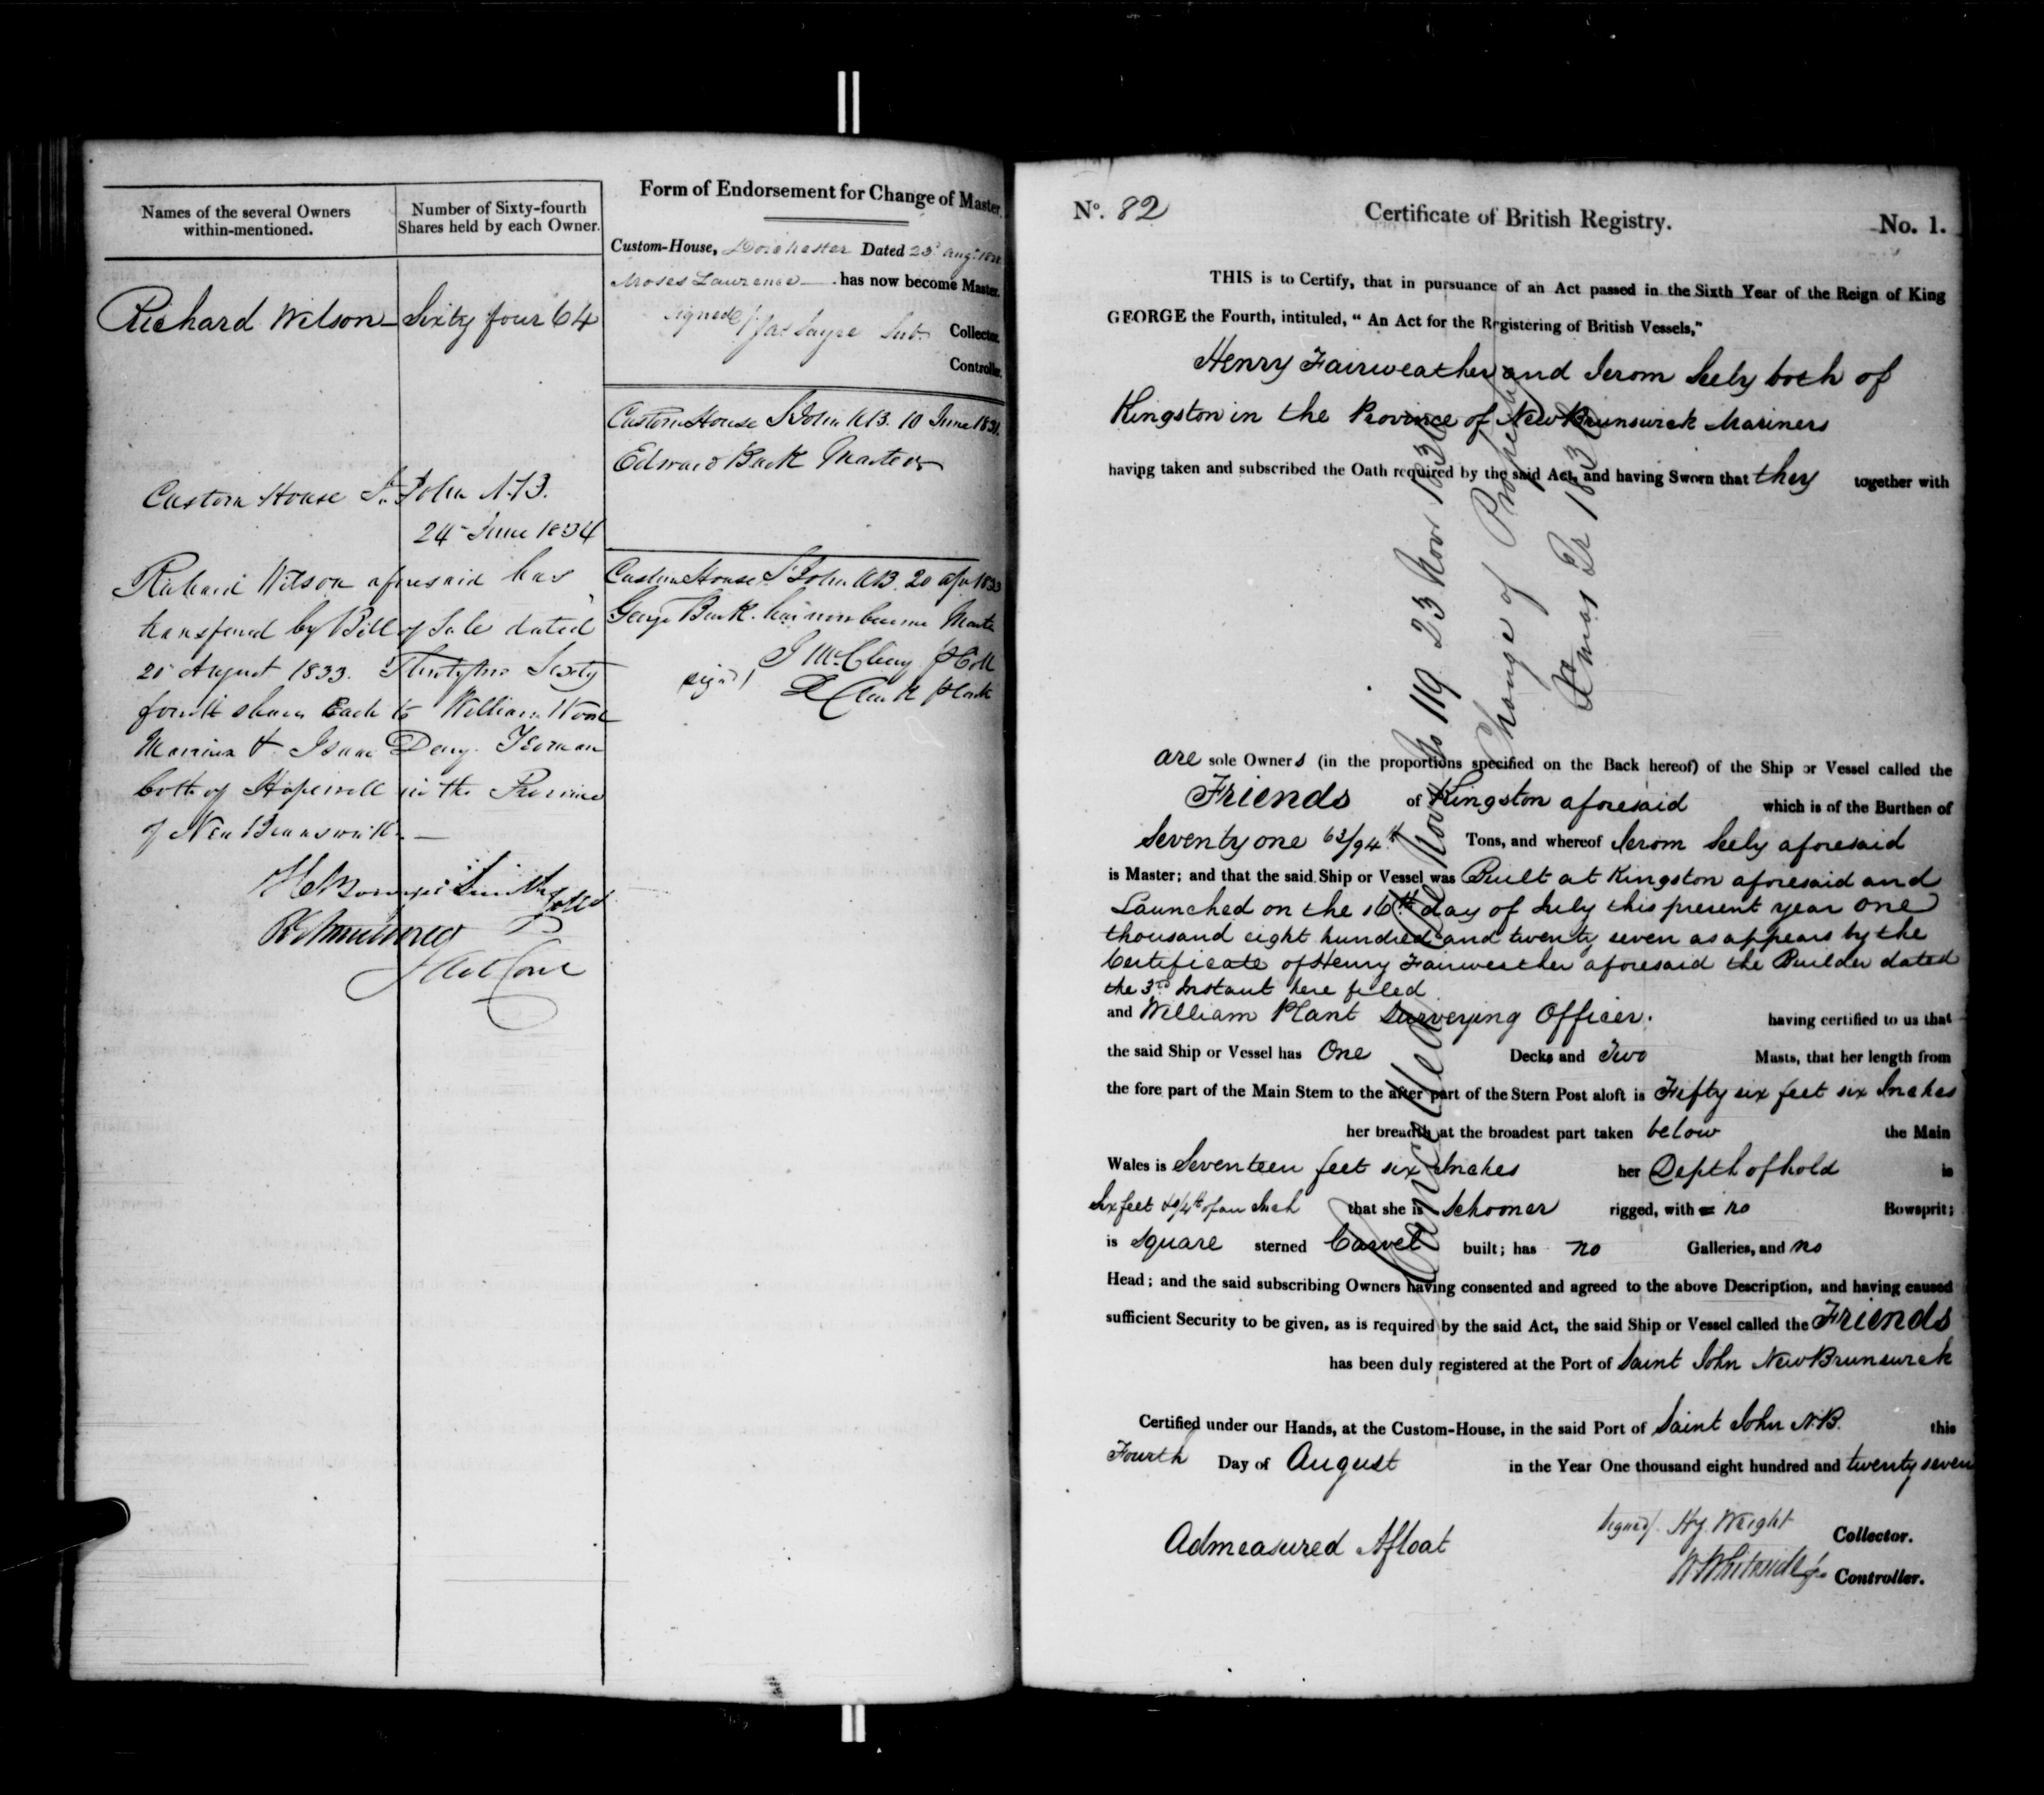 Names of the several Owners
within-mentioned.
Number of Sixty-fourth
Shares held by each Owner.
Richard Wilson Sixty four 64
Custom House St. John N.B.
24 June 1834
Richard Wilson aforesaid has
transferred by Bill of Sale dated
20 August 1833. Thirty two Sixty
fourth shares Each to William Wood
Mariner & Isaac Yeoman
both of Hopewell in the Province
of New Brunswick
Form of Endorsement for Change of Master.
Custom-House, Dorchester Dated 23d Augt.
Moses Lawrence has now become Master.
Signed Jas Sayre Sub. Collector.
Controller.
Custom House St John N.B. 10 June 1831.
Edward Back Master
Custom House St John N.B. 20 Apr 1833
George Back has now become Master
signd
No. 82
Certificate of British Registry.
No. 1.
THIS is to Certify, that in pursuance of an Act passed in the Sixth Year of the Reign of King
GEORGE the Fourth, intituled, “ An Act for the Registering of British Vessels,”
Henry Fairweather and Jerom Seely both of
Kingston in the Province of New Brunswick Mariners
having taken and subscribed the Oath required by the said Act, and having Sworn that they together with
are sole Owners (in the proportions specified on the Back hereof) of the Ship or Vessel called the
Friends of Kingston aforesaid which is of the Burthen of
Seventy one 63/94th Tons, and whereof Jerom Seely aforesaid
is Master; and that the said Ship or Vessel was Built at Kingston aforesaid and
Launched on the 16th day of July this present year one
thousand eight hundred and twenty seven as appears by the
Certificate of Henry Fairweather aforesaid the Builder dated
the 3rd Instant here filed
and William Plant Surveying Officer. having certified to us that
the said Ship or Vessel has One Decks and Two Masts, that her length from
the fore part of the Main Stem to the after part of the Stern Post aloft is Fifty six feet six Inches
her breadth at the broadest part taken below the Main
Wales is Seventeen feet six Inches her Depth of hold is
Six feet of an Inch that she is Schooner rigged, with no Bowsprit;
is Square sterned Carvel built; has no Galleries, and no
Head; and the said subscribing Owners having consented and agreed to the above Description, and having caused
sufficient Security to be given, as is required by the said Act, the said Ship or Vessel called the Friends
has been duly registered at the Port of Saint John New Brunswick
Certified under our Hands, at the Custom-House, in the said Port of Saint John N.B. this
Fourth Day of August in the Year One thousand eight hundred and twenty seven
Admeasured Afloat
Signed/. Hy. Wright Collector.
Controller.
Cancelled No 119 23 Nov
Change of Property